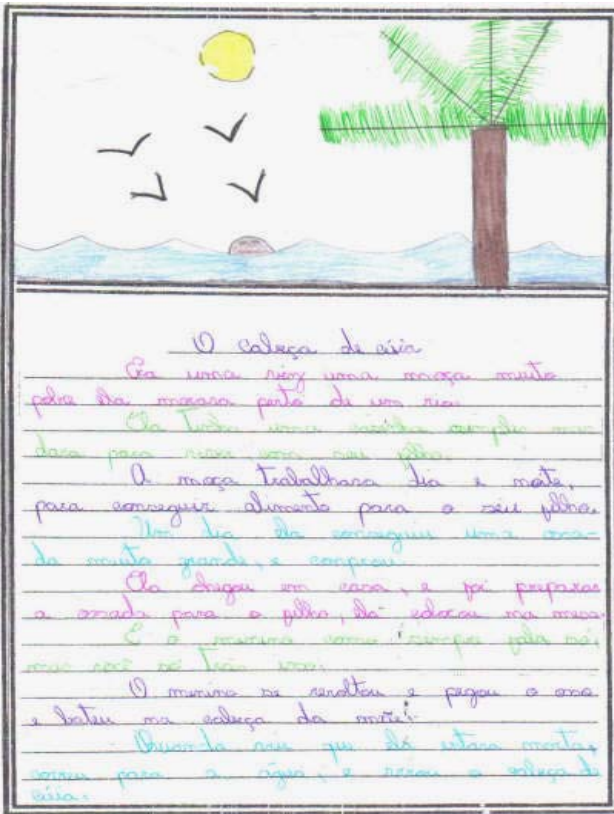 O cabeça de cúia
Era uma vez uma moça muito
pobre Ela morava perto de um rio.
Ela tinha uma casinha simples mas
dava para viver com seu filho.
A moça trabalhava dia e noite,
para conseguir alimento para o seu filho.
Um dia ela conseguiu uma ossa-
da muito grande, e comprou.
Ela chegou em casa, e foi preparar
a ossada para o filho, ela colocou na mesa.
E o menino como sempre fala mãe,
mas você só trás osso.
O menino se revoltou e pegou o osso
e bateu na cabeça da mãe.
Quando viu que ela estava morta,
correu para a água, e virou o cabeça de
cúia.